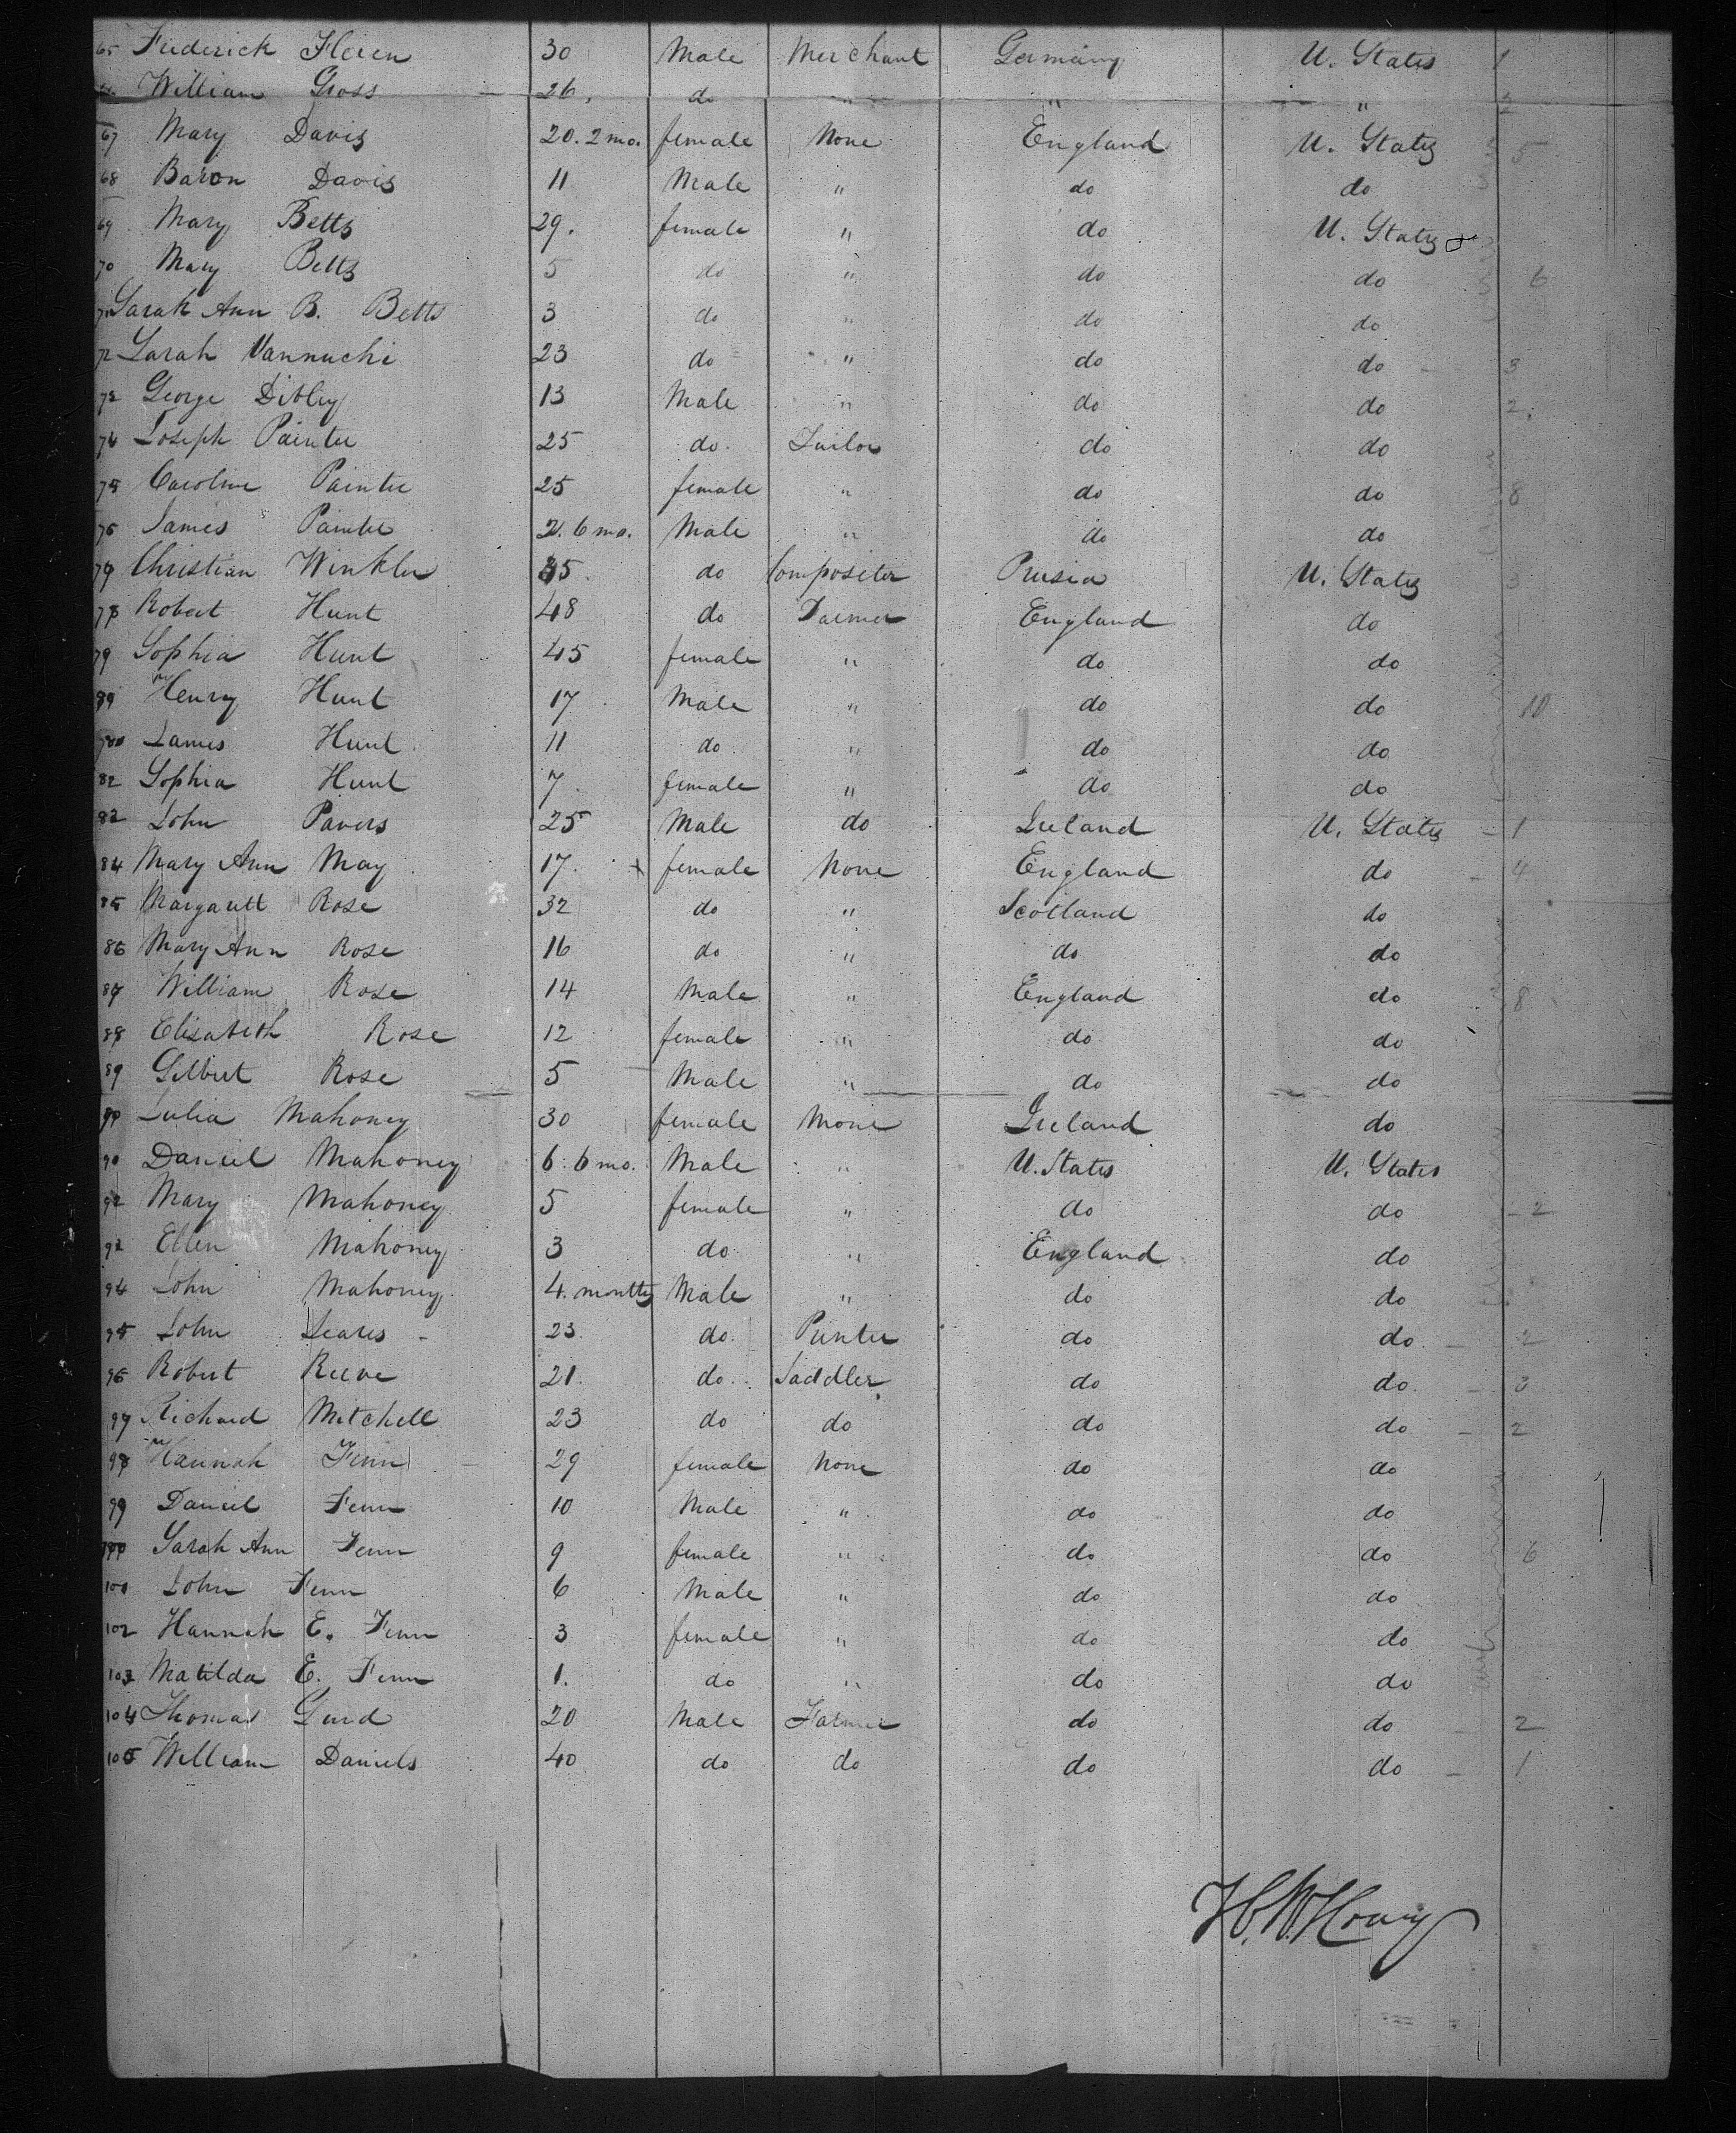 65 Frederick Fleien 30 Male Merchant Germany U. States 1
William Gross 26. do " " " 2
67 Mary Davis 20. 2 mo. female None England U. States 5
68 Baron Davis 11 Male " do do
69 Mary Betts 29. female " do U. States
70 Mary Betts 5 do " do do 6
Sarah Ann B. Betts 3 do " do do
72 Sarah Vannuchi 23 do " do do 3
73 George Dibley 13 Male " do do 2
74 Joseph Painter 25 do Tailor do do
75 Caroline Painter 25 female " do do 8
76 James Painter 2. 6 mo. Male " do do
77 Christian Winkler 35 do Compositer Prusia U. States 3
78 Robert Hunt 48 do Farmer England do
79 Sophia Hunt 45 female " do do
80 Henry Hunt 17 Male " do do 10
James Hunt 11 do " do do
82 Sophia Hunt 7 female " do do
83 John Pavers 25 Male do Ireland U. States 1
84 Mary Ann May 17. female None England do 4
85 Margarett Rose 32 do " Scotland do
86 Mary Ann Rose 16 do " do do
87 William Rose 14 Male " England do 8
88 Elisabeth Rose 12 female " do do
89 Gilbert Rose 5 Male " do do
90 Julia Mahoney 30 female None Ireland do
Daniel Mahoney 6. 6 mo. Male " U. States U. States
92 Mary Mahoney 5 female " do do 2
93 Ellen Mahoney 3 do " England do
94 John Mahoney 4. months Male " do do
95 John Seares 23. do. Printer do do 2
96 Robert Reeve 21. do. Saddler do do 3
97 Richard Mitchell 23 do do do do 2
98 Hannah Fenn 29 female None do do
99 Daniel Fenn 10 Male " do do
100 Sarah Ann Fenn 9 female " do do 6
101 John Fenn 6 Male " do do
102 Hannah E. Fenn 3 female " do do
103 Matilda E. Fenn 1. do " do do
104 Thomas Gurd 20 Male Farmer do do 2
105 William Daniels 40 do do do do 1